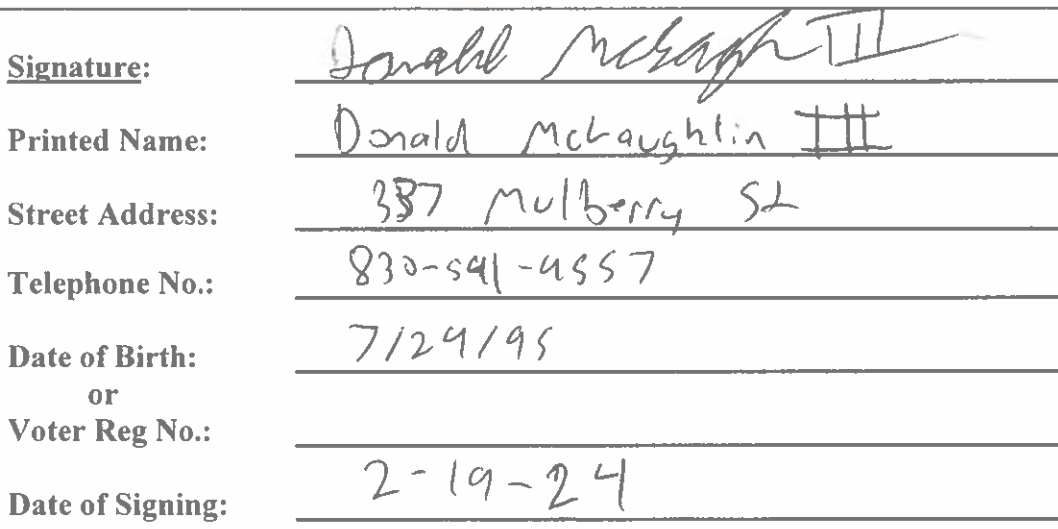 Signature: Donald McLaughlin III
Printed Name: Donald McLaughlin III
Street Address: 387 Mulberry St
Telephone No.: 830-591-4557
Date of Birth: 7/29/95
or
Voter Reg No.:
Date of Signing: 2-19-24